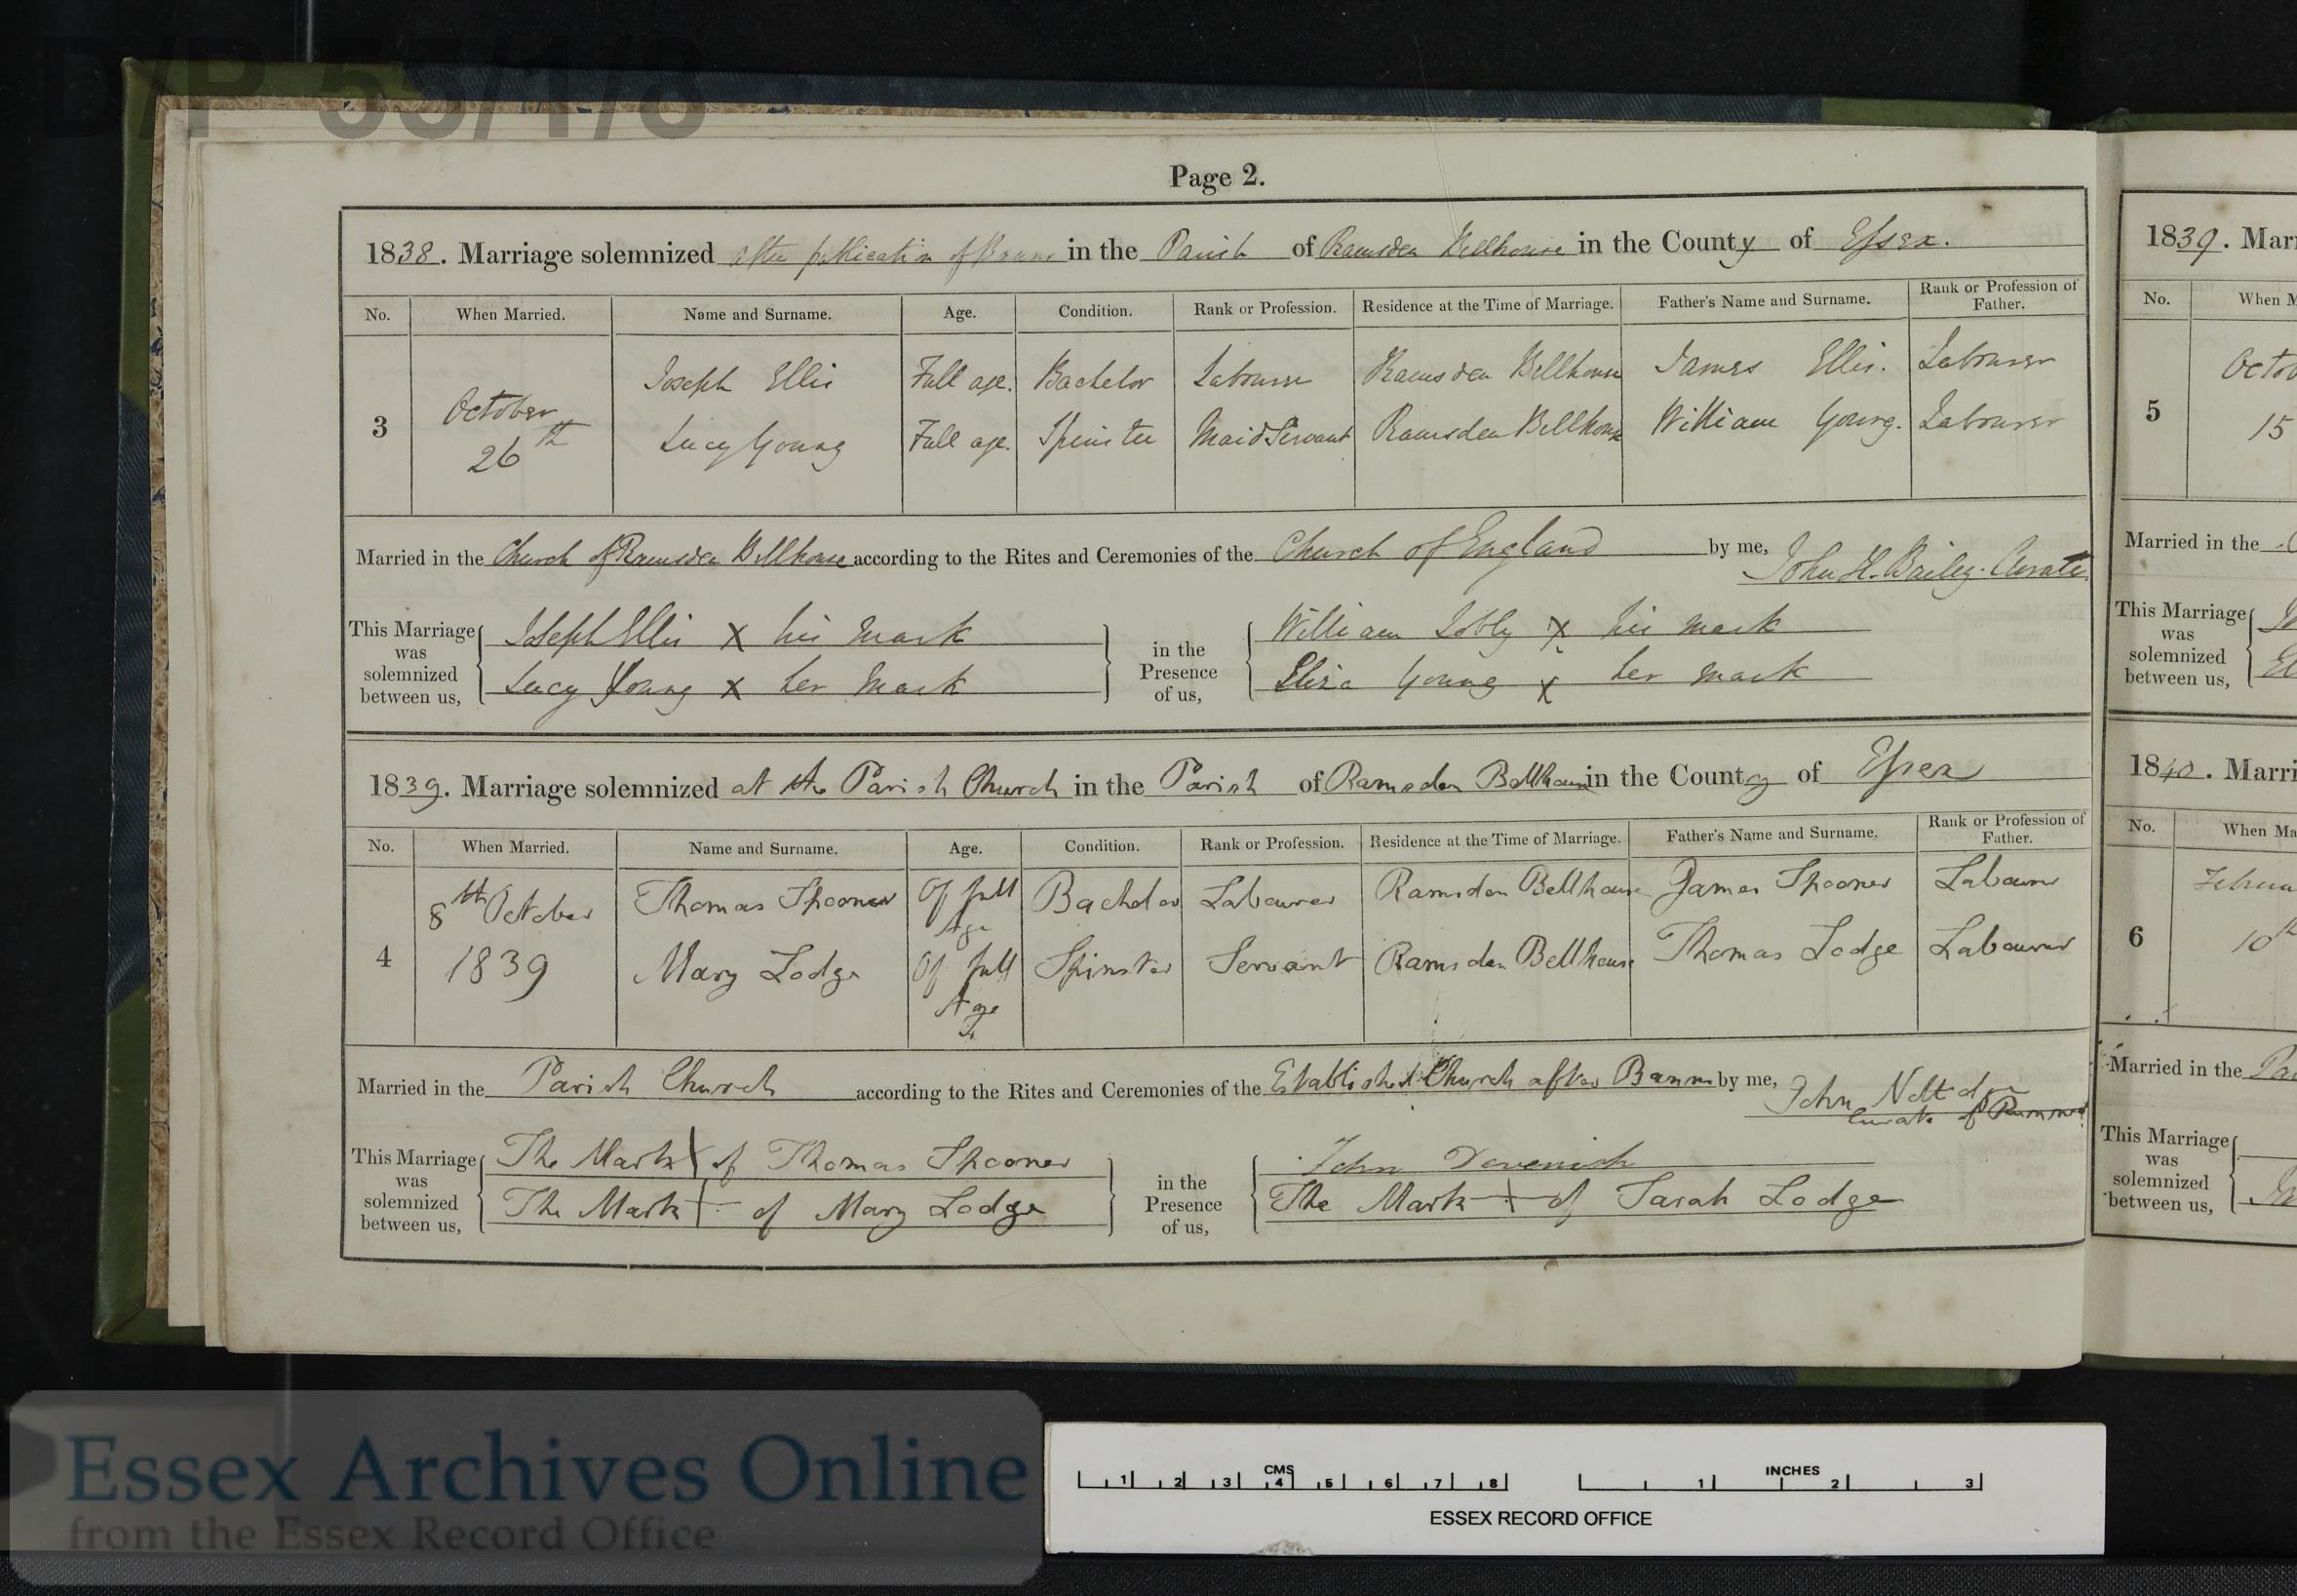 D/P 55/1/8
Page 2.
1838. Marriage solemnized after publication of Banns in the Parish of Ramsden Bellhouse in the County of Essex.
No. When Married. Name and Surname. Age. Condition. Rank or Profession. Residence at the Time of Marriage. Father's Name and Surname. Rank or Profession of Father.
3 October 26th
Joseph Ellis Full age. Bachelor Labourer Ramsden Bellhouse James Ellis. Labourer
Lucy Young Full age. Spinster Maid Servant Ramsden Bellhouse William Young. Labourer
Married in the Church of Ramsden Bellhouse according to the Rites and Ceremonies of the Church of England by me, John H. Bailey. Curate
This Marriage was solemnized between us,
Joseph Ellis X his mark
Lucy Young X her mark
in the Presence of us,
William X his mark
Eliza Young X her mark
1839. Marriage solemnized at the Parish Church in the Parish of Ramsden Bellhouse in the County of Essex
No. When Married. Name and Surname. Age. Condition. Rank or Profession. Residence at the Time of Marriage. Father's Name and Surname. Rank or Profession of Father.
4 8th October 1839
Thomas Spooner Of full Age Bachelor Labourer Ramsden Bellhouse James Spooner Labourer
Mary Lodge Of full Age Spinster Servant Ramsden Bellhouse Thomas Lodge Labourer
Married in the Parish Church according to the Rites and Ceremonies of the Established Church after Banns by me, John
Curate of
This Marriage was solemnized between us,
The Mark X of Thomas Spooner
The Mark + of Mary Lodge
in the Presence of us,
John Devenish
The Mark + of Sarah Lodge
1839. Marr
No. When M
5 Octob
15
Married in the
This Marriage was solemnized between us,
1840. Marri
No. When Ma
6 Februa
10th
Married in the Pa
This Marriage was solemnized between us,
Essex Archives Online
from the Essex Record Office
CMS 1 2 3 4 5 6 7 8
INCHES 1 2 3
ESSEX RECORD OFFICE